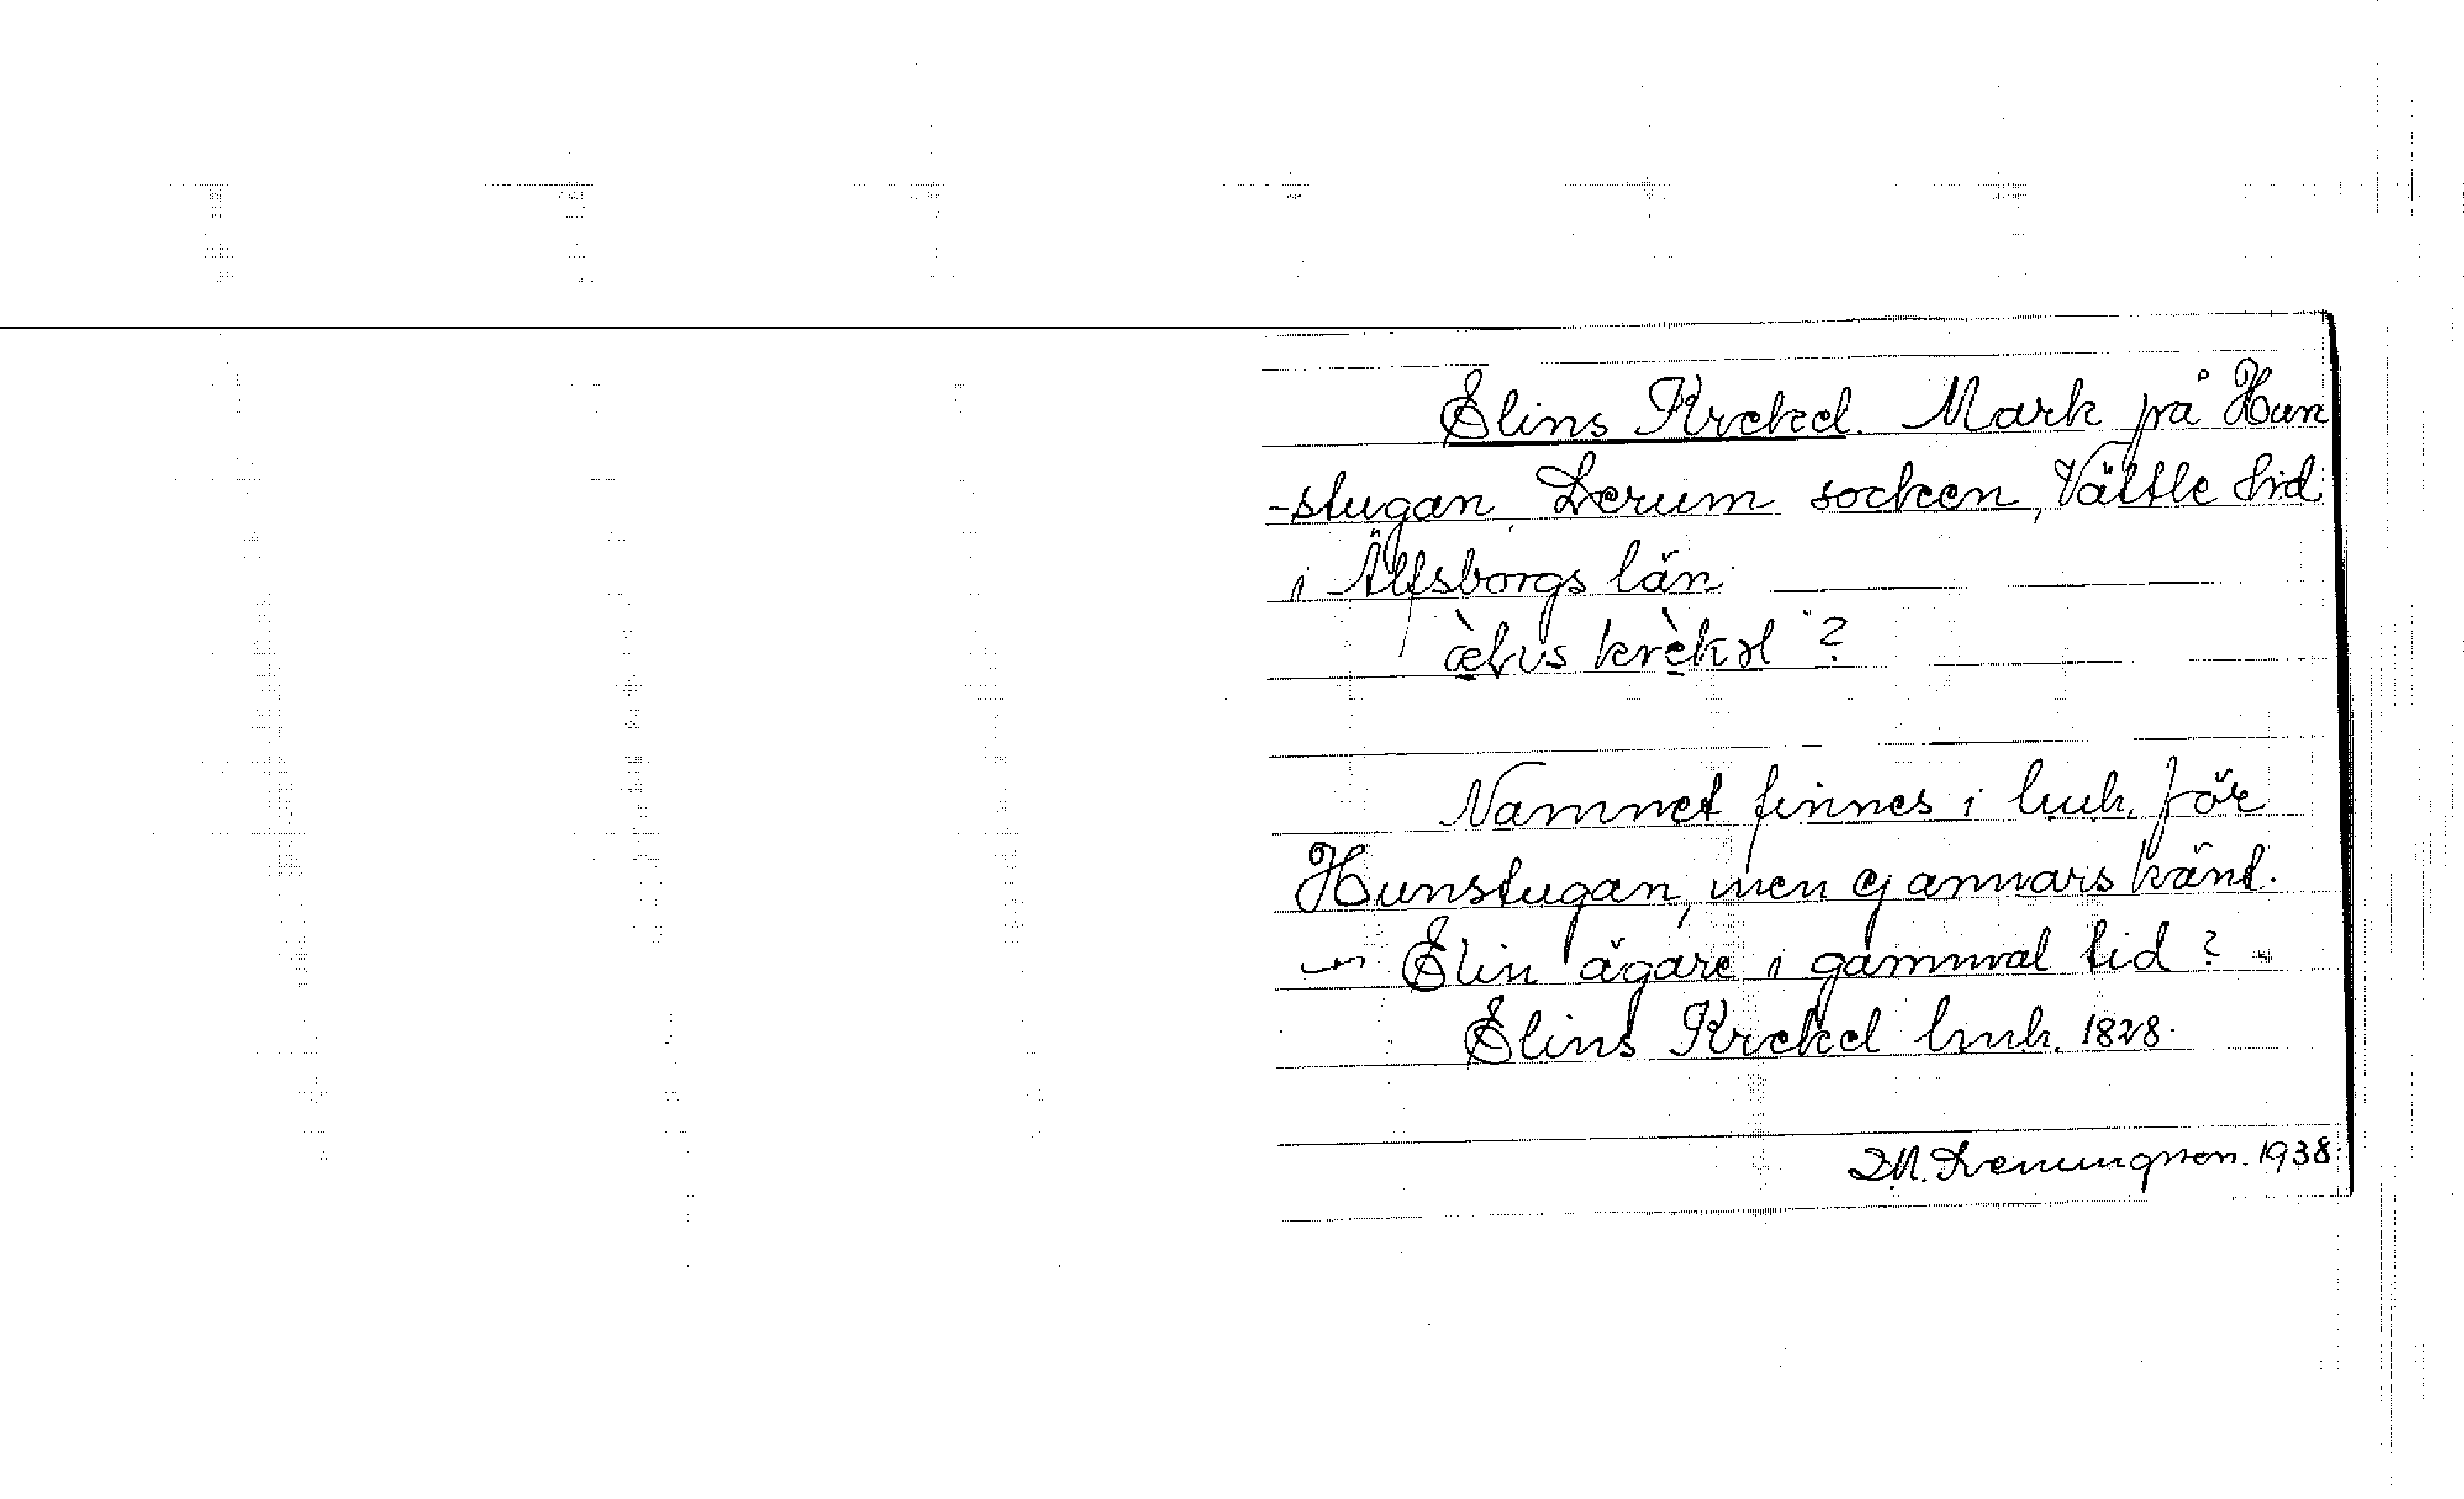 Elins Krekel. Mark på Hun
-stugan, Lerum socken, Vättle hrd
i Älfsborgs län.
krèkəl ?
Namnet finnes i lmh. för
Hunstugan, men ej annars känt.
– Elin ägare i gammal tid? –
Elins Krekel lmh. 1828.
1938